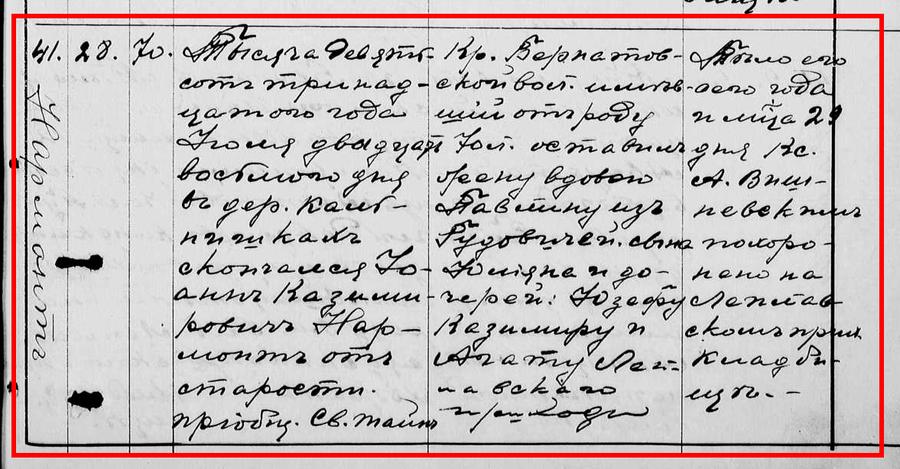 41. 28. 70.
Нармонтъ
Тысяча девять-
сотъ тринад-
цатого года
Іюля двадцать
восьмого дня
въ дер. Камб-
нишкахъ
скончался Іо-
аннъ Казими-
ровичъ Нар-
монтъ отъ
старости.
пріобщ. Св. тайнъ
Кр. Бернатов-
ской вол. имѣв-
шій отъ роду
70 л. оставилъ
жену вдовою
Павлину изъ
Гудовичей. сына
Юліяна и до-
черей: Юзефу
Казимиру и
Агату
навскаго
прихода
Тѣло его
сего года
и мѣца 29
дня Кс.
А. Виш-
невскимъ
похоро-
нено на
скомъ прих.
кладби-
щѣ. -